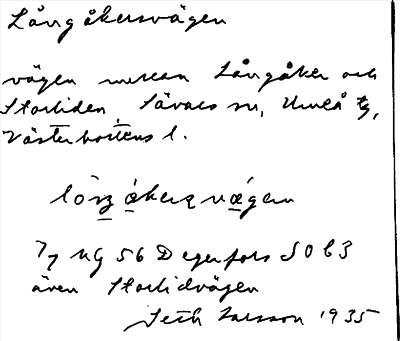 Långåkersvägen
vägen mellan Långåker och
Storliden, Sävars sn, Umeå tg,
Västerbottens l.
lòŋ ákerʂ vǽgen
7/7 NG 56 Degerfors SO b3
även Storlidvägen
Seth Larsson 1935